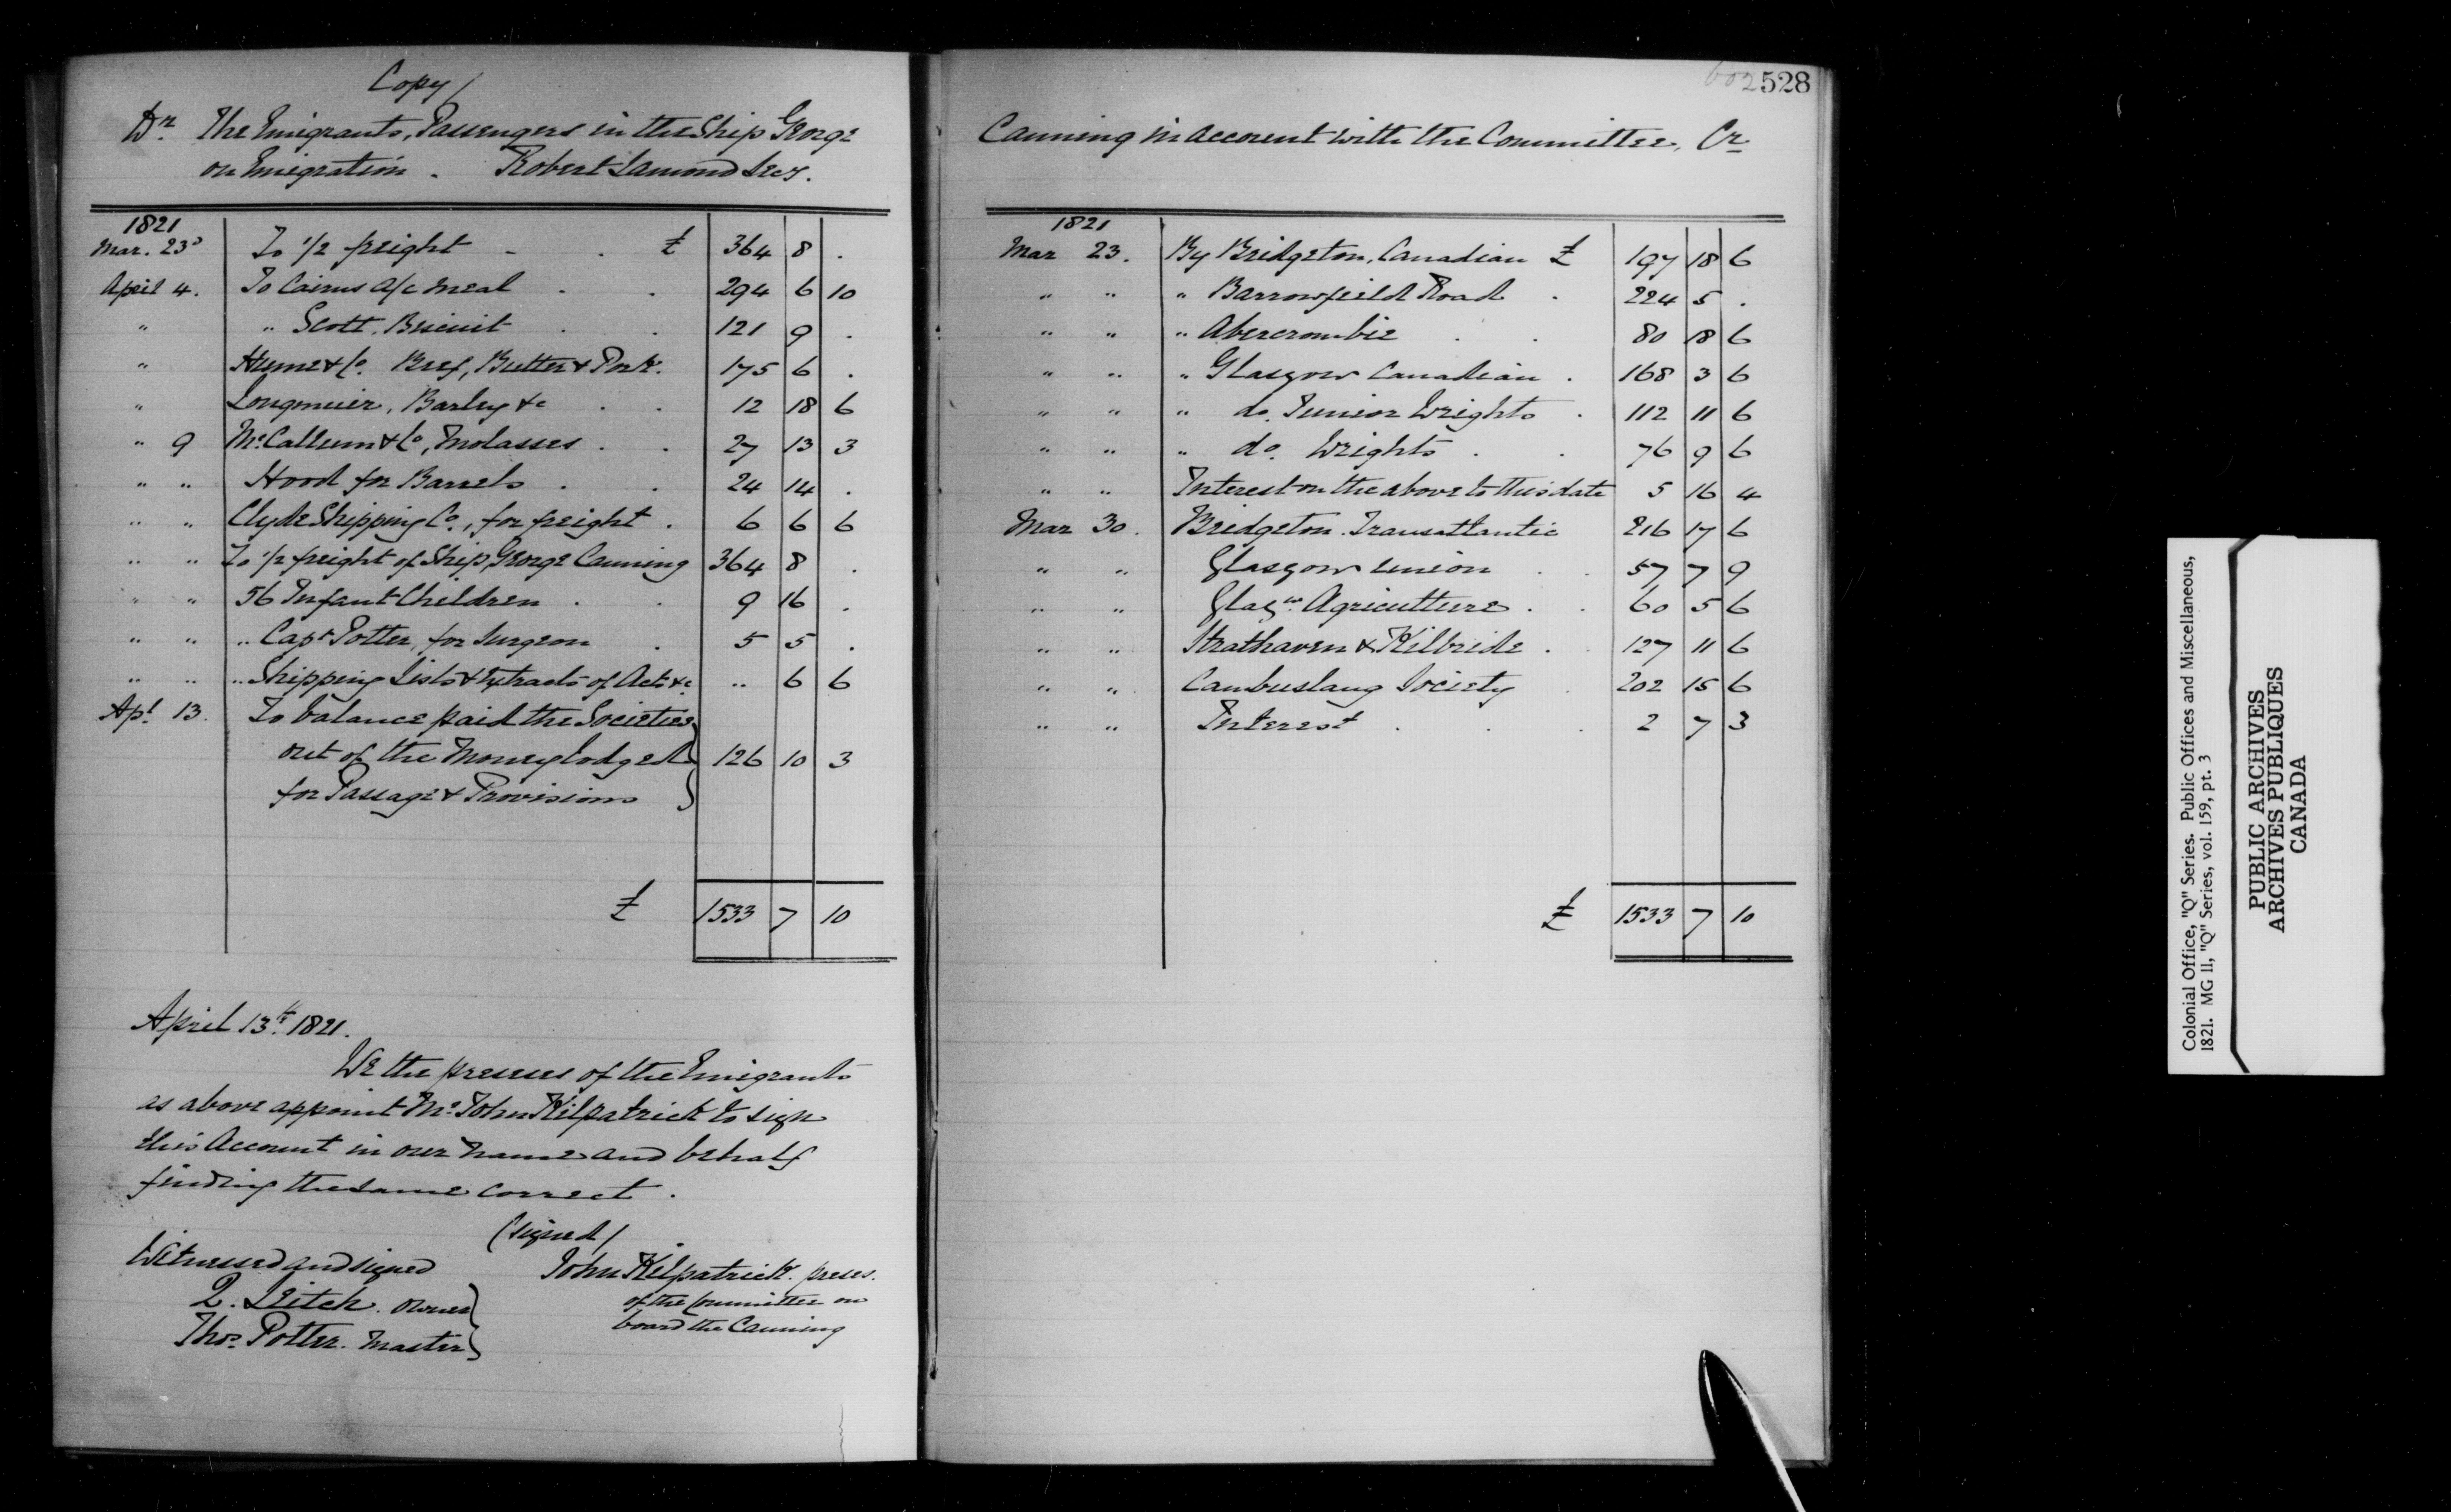 Copy/
Dr. The Emigrants, Passengers in the Ship George
on Emigration. Robert Lamond Secy.
1821
Mar. 23d To 1/2 freight - . £ 364 8 .
April 4. To Cairns a/c meal . . 294 6 10
" " Scott. Biscuit . . 121 9 .
" Hume & Co. Beef, Butter & Pork. 175 6 .
" Longmuir, Barley &c . . 12 18 6
" 9 McCallum & Co, Molasses . . 27 13 3
" " Hood for Barrels . . 24 14 .
" " Clyde Shipping Co., for freight . 6 6 6
" " To 1/2 freight of Ship, George Canning 364 8 .
" " 56 Infant Children . . 9 16 .
" " " Capt Potter, for Surgeon . 5 5 .
" " " Shipping Lists & Extracts of Acts &c. " 6 6
Apl 13. To balance paid the Societies
out of the Money lodged 126 10 3
for Passage & Provisions
£ 1533 7 10
April 13th. 1821.
We the preses of the Emigrants
as above appoint Mr. John Kilpatrick to sign
this Account in our name and behalf
finding the same correct.
(signed/
Witnessed and signed John Kilpatrick. preses.
Q. Leitch. owner of the Committee on
Thos. Potter. Master board the Canning
602 528
Canning in account with the Committee, Cr
1821
Mar 23. By Bridgeton, Canadian £ 197 18 6
" " " Barrowfield Road . 224 5 .
" " " Abercrombie . . 80 18 6
" " " Glasgow Canadian . 168 3 6
" " " do. Junior Wrights . 112 11 6
" " " do. Wrights . . 76 9 6
" " Interest on the above to this date 5 16 4
Mar 30. Bridgeton. Transatlantic 216 17 6
" " Glasgow Union . . 57 7 9
" " Glasw. Agriculture . . 60 5 6
" " Strathaven & Kilbride . . 127 11 6
" " Cambuslang Society . 202 15 6
" " Interest . . . 2 7 3
£ 1533 7 10
Colonial Office, "Q" Series. Public Offices and Miscellaneous,
1821. MG 11, "Q" Series, vol. 159, pt. 3
PUBLIC ARCHIVES
ARCHIVES PUBLIQUES
CANADA